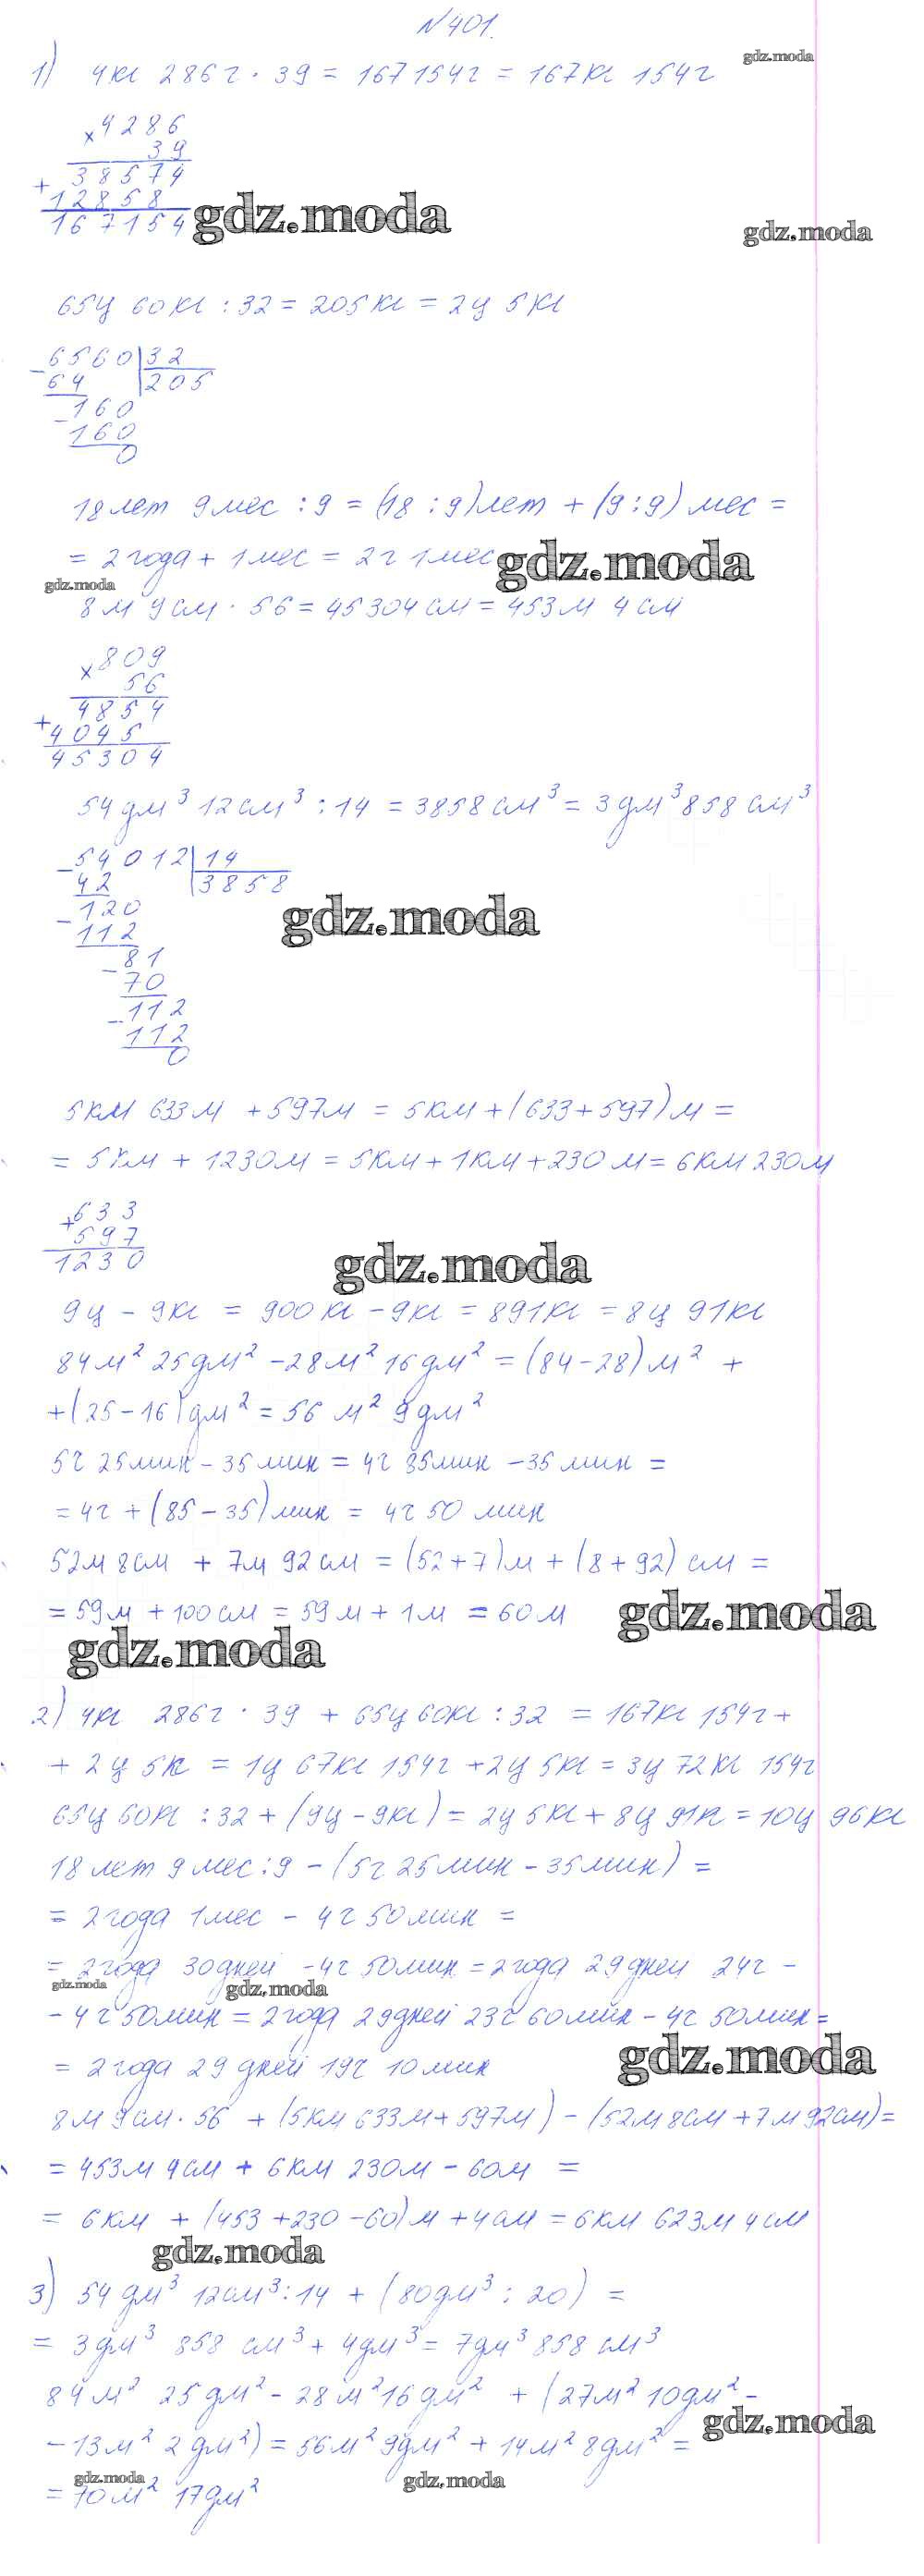 №401.
gdz.moda
1) 4кг 286г · 39 = 167154г = 167кг 154г
× 4286
39
+ 38574
12858
167154
gdz.moda
gdz.moda
65ц 60кг : 32 = 205кг = 2ц 5кг
- 6560 | 32
64 | 205
- 160
160
0
18лет 9мес : 9 = (18 : 9)лет + (9 : 9) мес =
= 2года + 1мес = 2г 1мес
gdz.moda
gdz.moda
8м 9см · 56 = 45304см = 453м 4см
× 809
56
+ 4854
4045
45304
54дм³ 12см³ : 14 = 3858см³ = 3дм³ 858см³
- 54012 | 14
42 | 3858
- 120
112
- 81
70
- 112
112
0
gdz.moda
5км 633м + 597м = 5км + (633 + 597)м =
= 5км + 1230м = 5км + 1км + 230м = 6км 230м
+ 633
597
1230
gdz.moda
9ц - 9кг = 900кг - 9кг = 891кг = 8ц 91кг
84м² 25дм² - 28м² 16дм² = (84 - 28)м² +
+ (25 - 16)дм² = 56 м² 9дм²
5г 25мин - 35мин = 4г 85мин - 35мин =
= 4г + (85 - 35)мин = 4г 50 мин
52м 8см + 7м 92см = (52 + 7)м + (8 + 92) см =
= 59м + 100см = 59м + 1м = 60м
gdz.moda
gdz.moda
2) 4кг 286г · 39 + 65ц 60кг : 32 = 167кг 154г +
+ 2ц 5кг = 1ц 67кг 154г + 2ц 5кг = 3ц 72кг 154г
65ц 60кг : 32 + (9ц - 9кг) = 2ц 5кг + 8ц 91кг = 10ц 96кг
18лет 9мес : 9 - (5г 25мин - 35мин) =
= 2года 1мес - 4г 50мин =
= 2года 30дней - 4г 50мин = 2года 29дней 24г -
gdz.moda
gdz.moda
- 4г 50мин = 2года 29дней 23г 60мин - 4г 50мин =
= 2года 29дней 19г 10мин
gdz.moda
8м 9см · 56 + (5км 633м + 597м) - (52м 8см + 7м 92см) =
= 453м 4см + 6км 230м - 60м =
= 6км + (453 + 230 - 60)м + 4см = 6км 623м 4см
gdz.moda
3) 54дм³ 12см³ : 14 + (80дм³ : 20) =
= 3дм³ 858 см³ + 4дм³ = 7дм³ 858см³
84м² 25дм² - 28м² 16дм² + (27м² 10дм² -
gdz.moda
- 13м² 2дм²) = 56м² 9дм² + 14м² 8дм² =
gdz.moda
gdz.moda
= 70м² 17дм²